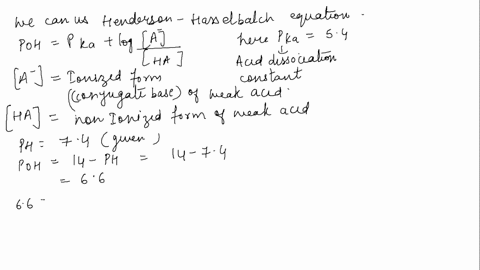 we can us Henderson-Hasselbalch equation.
POH = Pka + log [A⁻] / [HA]
here Pka = 5.4
↓
Acid dissociation constant
[A⁻] = Ionized form (conjugate base) of weak acid.
[HA] = non Ionized form of weak acid
PH = 7.4 (given)
POH = 14 - PH = 14 - 7.4
= 6.6
6.6 -